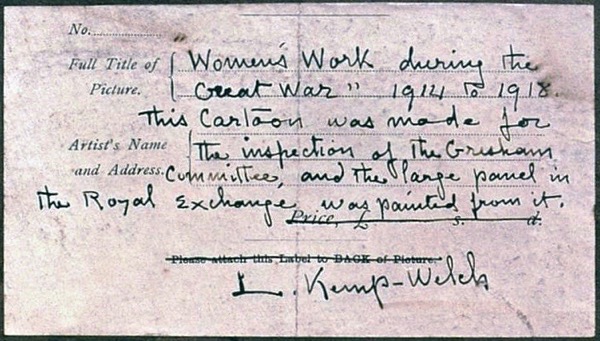 No.
Full Title of Picture. "Women's Work during the
Great War" 1914 to 1918.
This Cartoon was made for
Artist's Name and Address. the inspection of the Gresham
Committee, and the large panel in
the Royal Exchange, was painted from it.
Price, £ s. d.
Please attach this Label to BACK of Picture.
L. Kemp-Welch